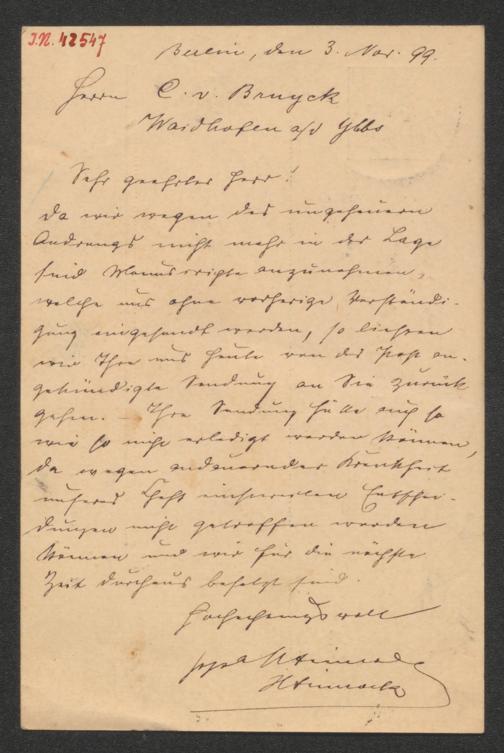 J.N. 42547
Berlin, den 3. Nov. 99.
Herrn C. v. Bruyck
Waidhofen a/d Ybbs
Sehr geehrter Herr!
Da wir wegen des ungeheuern
Andrangs nicht mehr in der Lage
sind Manuscripte anzunehmen,
welche uns ohne vorherige Verständi-
gung eingesandt werden, so liessen
wir Ihre uns heute von der Post an-
gekündigte Sendung an Sie zurück
gehen. – Ihre Sendung hätte auch so
wie so nicht erledigt werden können,
da wegen andauernder Krankheit
unseres Chefs einstweilen Entschei-
dungen nicht getroffen werden
können und wir für die nächste
Zeit durchaus besetzt sind.
Hochachtungsvoll